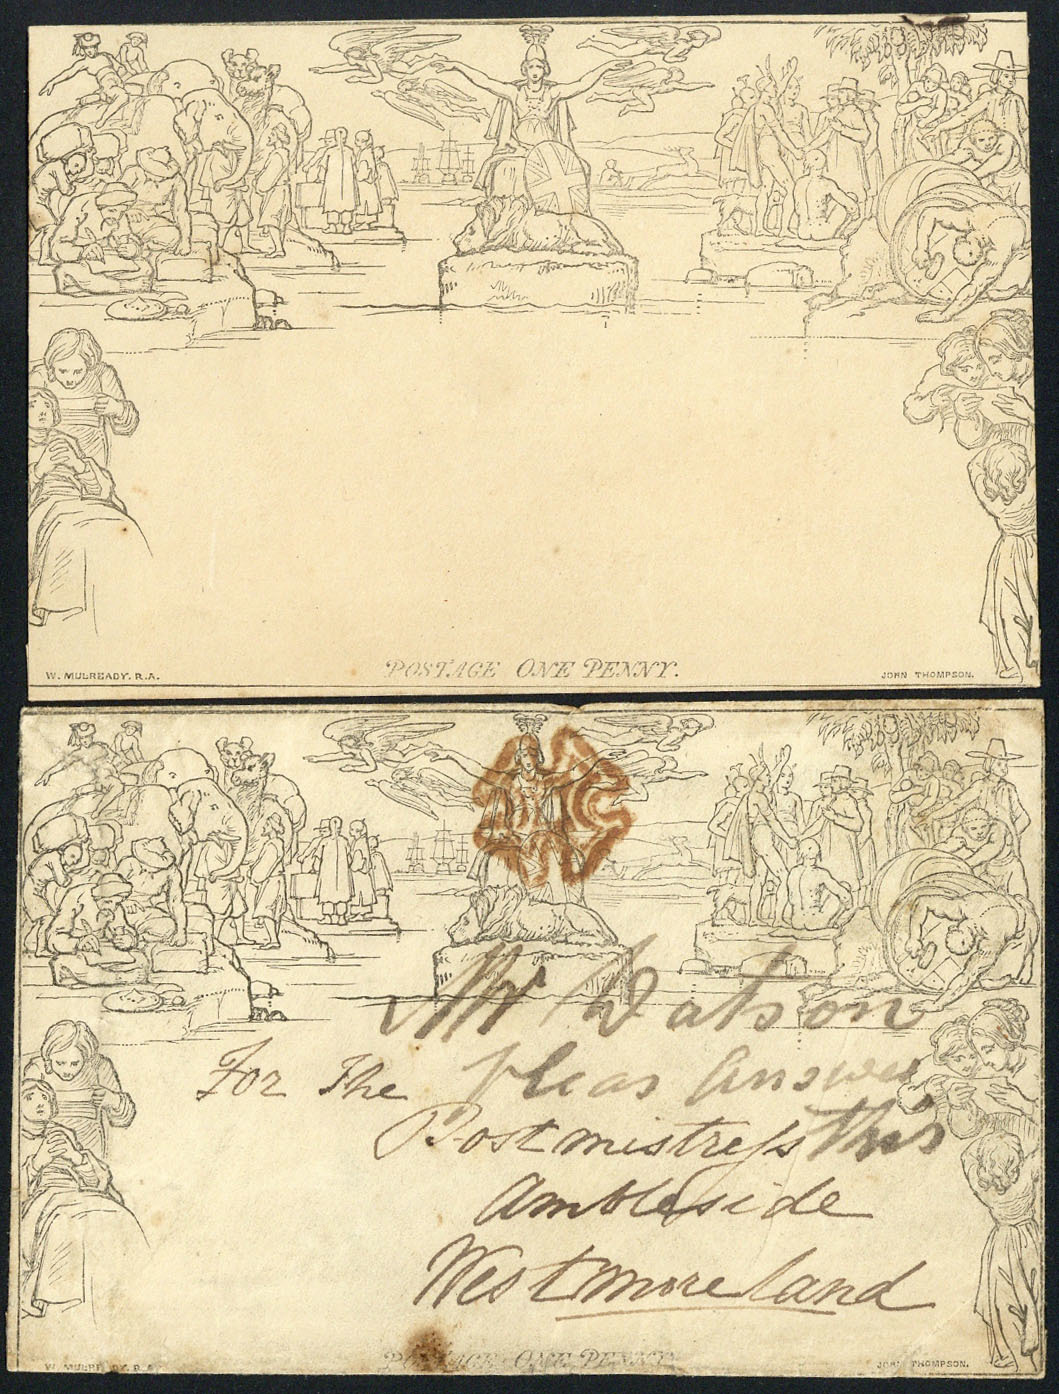 POSTAGE ONE PENNY.
W. MULREADY. R.A.
JOHN THOMPSON.
Mr Watson
For The pleas answer
Postmistress this
Ambleside
Westmoreland
POSTAGE ONE PENNY
W. MULREADY. R.A.
JOHN THOMPSON.